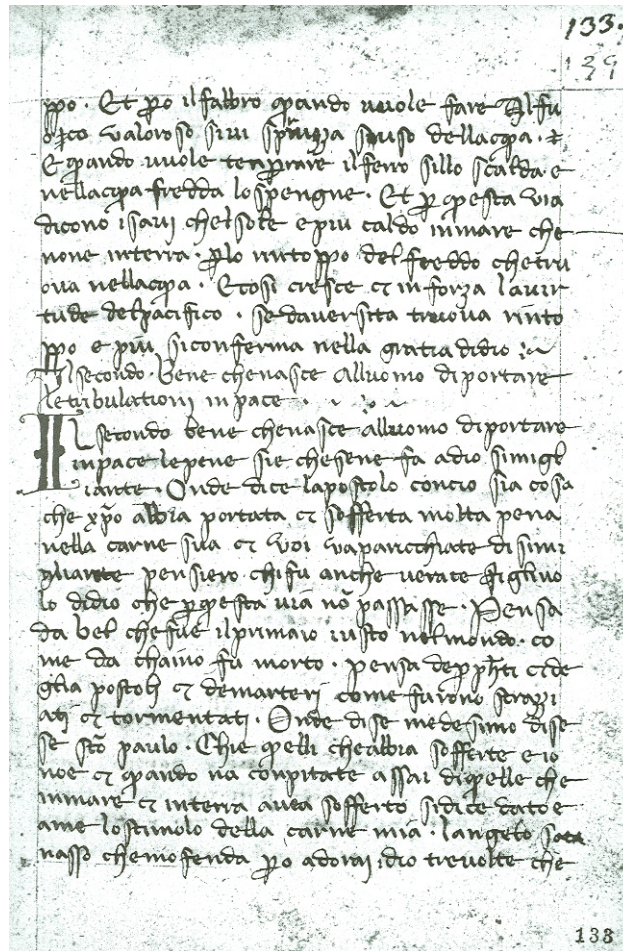 133.
139
ppo. Et p̱o il fabbro quando vuole fare Al fu
oco valoroso sivi spruzza suso dellacqua. Et
E quando vuole temprare il ferro sillo scalda e
nellacqua fredda lo spengne. Et p̱ questa via
dicono i savi chel sole e piu caldo in mare che
none in terra. p̱lo rintoppo del freddo chetru
ova nellacqua. Et cosi cresce et in forza lavir
tude del pacifico. se daversita truova rinto
ppo e piu si conferma nella gratia didio :~
Il secondo bene che nasce Alluomo di portare
le tribulationi in pace.
IL secondo bene che nasce alluomo di portare
in pace lepene sie chesene fa adio simigl
iante. Onde dice lapostolo concio sia cosa
che xp̄o abbia portata et sofferta molta pena
nella carne sua et voi vaparecchiate di simi
gliante pensiero chi fu anche verace figliuo
lo didio che p̱ questa via nō passasse. Pensa
da bel che fue il primaio iusto nel mondo. co
me da chaino fu morto. pensa de p̱ph̄ti et de
glia postoli et demarteri come furono strazi
ati et tormentati. Onde di se medesimo disse
se sc̄o paulo. Chie quelli che abbia sofferte e io
noe et quando na conpitate assai di quelle che
in mare et in terra avea sofferto si dice dato e
ame lo stimolo della carne mia. langelo sata
nasso che mofenda p̱o adorai idio trevolte che
133